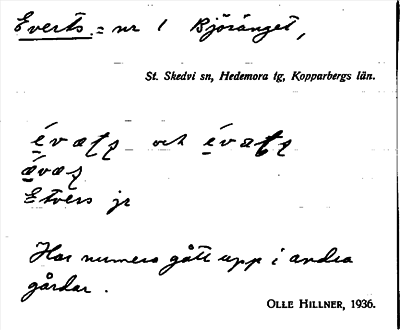 Everts = nr 1 Björänget,
St. Skedvi sn, Hedemora tg, Kopparbergs län.
och
Etvers jr
Har numera gått upp i andra
gårdar.
OLLE HILLNER, 1936.